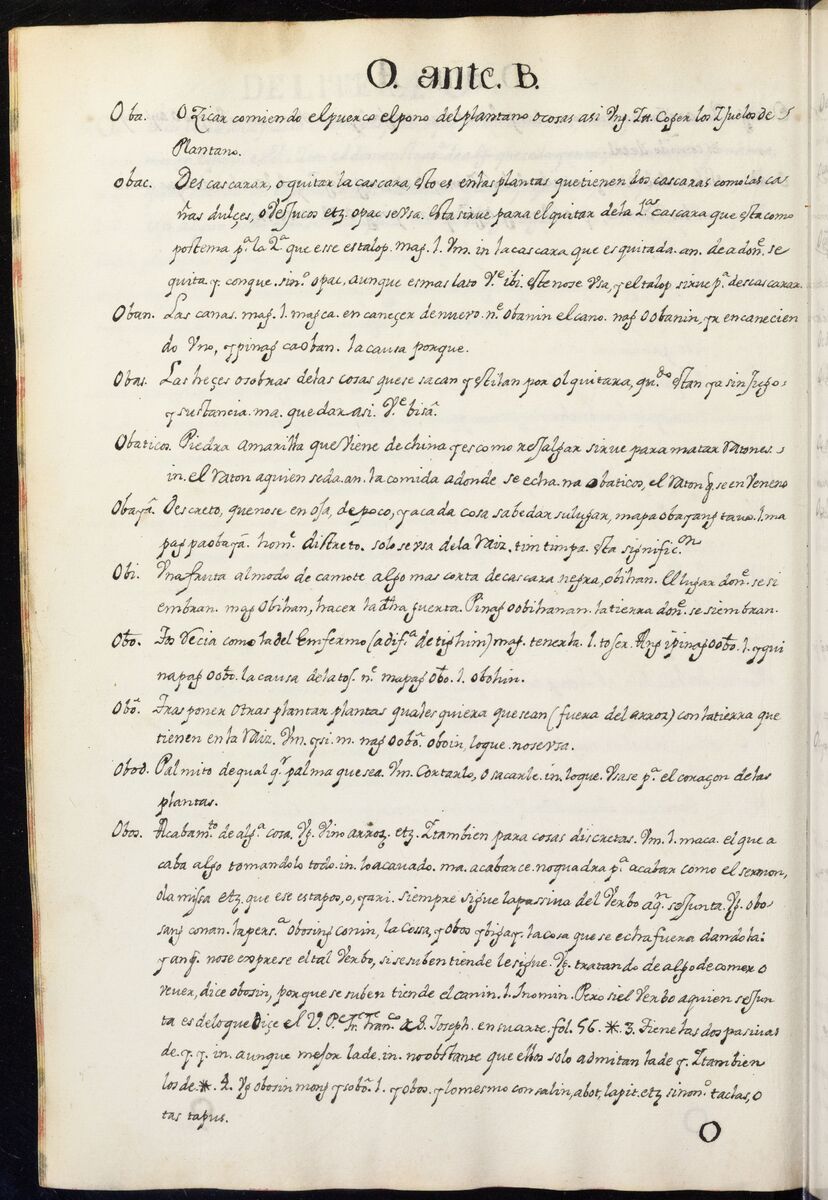 O. ante. B.
Oba. O Zicar comiendo el puerco el pono del plantano o cosas asi Vng. In. Coger los Isuelos de
Plantano.
obac. Descascarar, o quitar la cascara, esto es en las plantas que tienen dos cascaras como las ca
ñas dulçes, o Vejucos etz. opac se vsa. Esta sirue para el quitar de la 1.ª cascara que esta como
postema p.ª la 2.ª que esse es talop. mag. l. Vm. in la cascara que es quitada. an. de adon.e se
quita. y. conque. sin.º opac, aunque es mas lato V.e ibi. este no se vsa, y el talop sirue p.ª descascarar.
Oban. Las canas. mag. l. magca. encaneçer de nuevo. n.e obanin el cano. nag oobanin, yr encanecien
do Vno, ypinag caoban. la causa porque.
Obas. Las heçes o sobras de las cosas que se sacan y estilan por el quitara, qu.do estan ya sin jugo
y sustancia. ma. quedar asi. V.e bisâ.
Obaticos. Piedra amarilla que Viene de china y es como resalgar sirue para matar ratones.
in. el raton a quien se da. an. la comida adonde se echa. na obaticos, el raton q se envenenò
Obayâ. Descreto, que no se enoja, de poco, y a cada cosa sabe dar su lugar, mapaobayang tauo. l. ma
pag paobayâ. hom.e distreto. solo se vsa de la raiz. timtimpa. esta signific.on
Obi. Vna fruta al modo de camote algo mas corta de cascara negra, obihan. El lugar don.e se si
embran. mag obihan, hacer la dha guerta. Pinag oobihanan. la tierra don.e se siembran.
Obo. Tos recia como la del Emfermo (a dif.ª de tighim) mag. tenerla. l. toser. Ang ipinag oobo. l. yqui
napag oobo. la causa de la tos. n.e mapag obo. l. obohin.
Obô. Trasponer otras plantar plantas quales quiera que sean (fuera del arroz) con la tierra que
tienen en la raiz. Vm. y si. m. nag oobô. oboin, loque. no se vsa.
Obod. Palmito de qual qr palma que sea. Vm. Cortarlo, o sacarle. in. loque. Vsase p.ª el coraçon de las
plantas.
Obos. Acabam.to de alg.ª cosa. Vg. Vino arroz. etz. I tambien para cosas discretas. Vm. l. maca. el que a
caba algo tomandolo todo. in. lo acavado. ma. acabarce. no quadra p.ª acabar como el sermon,
o la missa etz. que ese es tapos, o, yari. siempre sigue la passiua del Verbo a q.n se junta. Vg. obo
sang conan. la pers.ª obosing conin, la cossa, y obos ybigay. la cosa que se echa fuera dandola:
y anq. no se exprese el tal Verbo, si se subentiende le sigue. Vg. tratando de algo de comer o
vever, dice obosin, porque se subentiende el canin. l. Inomin. Pero si el Verbo a quien se jun
ta es de lo que diçe el V. P.e Fr. Fran.co de S. Joseph. en su arte. fol. 56. * 3. Tiene las dos pasiuas
de. y. y. in. aunque mejor la de. in. no obstante que ellos solo admitan la de y. I tambien
los de * 4. Vg obosin mong ysobô. l. y obos. y lo mesmo con salin, abot, lapit. etz sinon.º taclas, o
tas tapus.
O